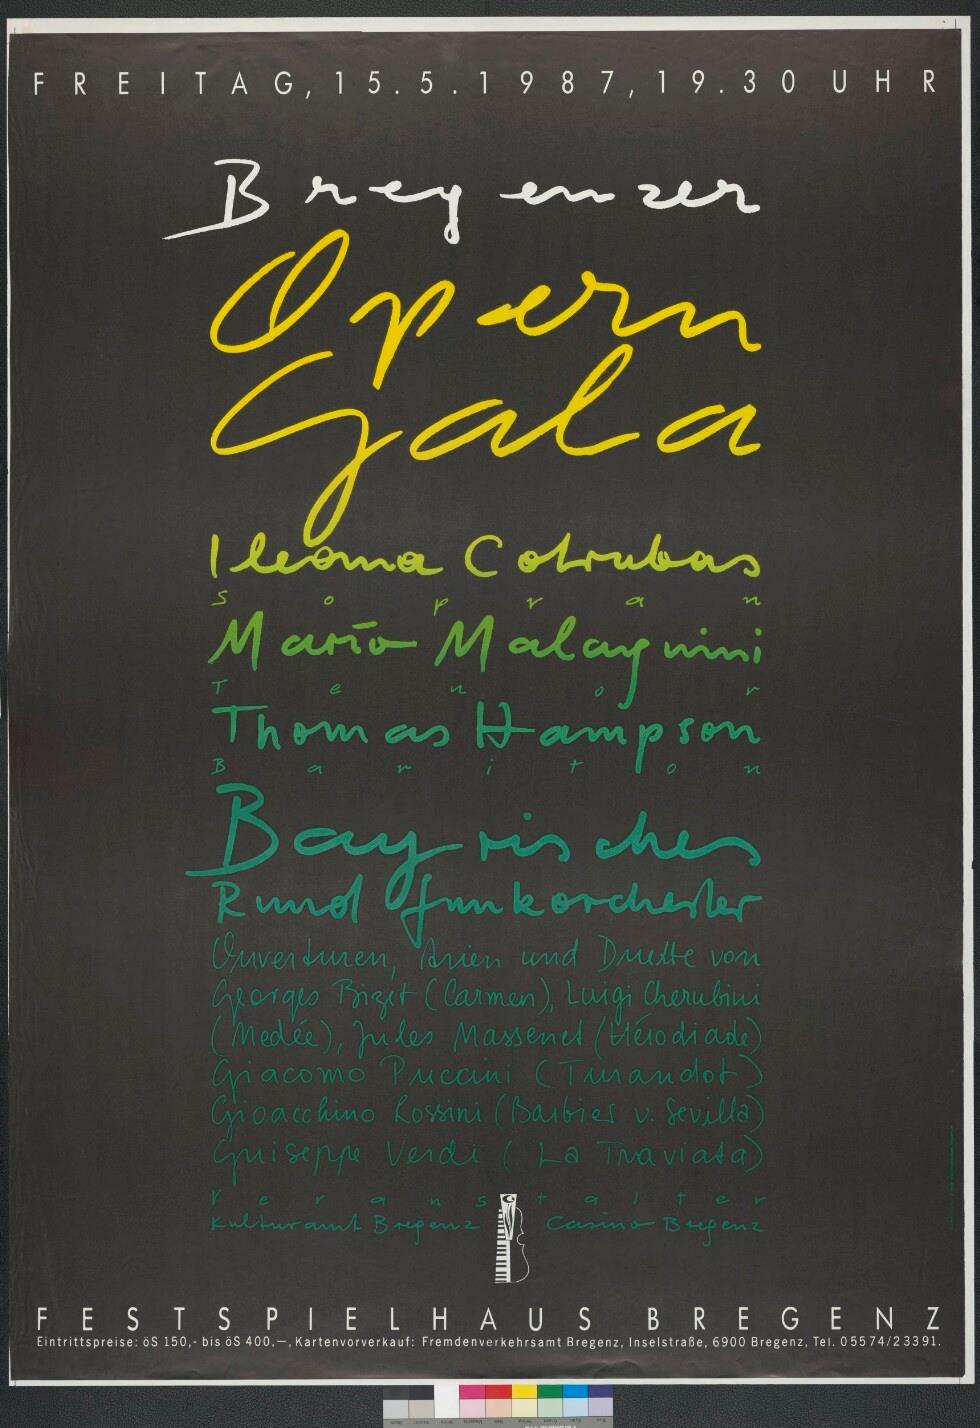 FREITAG, 15.5.1987, 19.30 UHR
Bregenzer
Opern
Gala
Ileana Cotrubas
Sopran
Mario Malagnini
Tenor
Thomas Hampson
Bariton
Bayrisches
Rundfunkorchester
Ouverturen, Arien und Duette von
Georges Bizet (Carmen), Luigi Cherubini
(Medée), Jules Massenet (Hérodiade)
Giacomo Puccini (Turandot)
Gioacchino Rossini (Barbier v. Sevilla)
Guiseppe Verdi (La Traviata)
Veranstalter
Kulturamt Bregenz Casino Bregenz
FESTSPIELHAUS BREGENZ
Eintrittspreise: öS 150,- bis öS 400.—, Kartenvorverkauf: Fremdenverkehrsamt Bregenz, Inselstraße, 6900 Bregenz, Tel. 05574/23391.